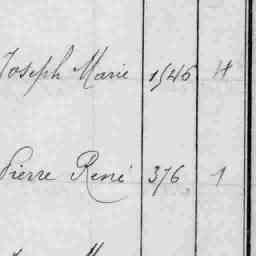 Joseph Marie 1546 4
Pierre René 376 1